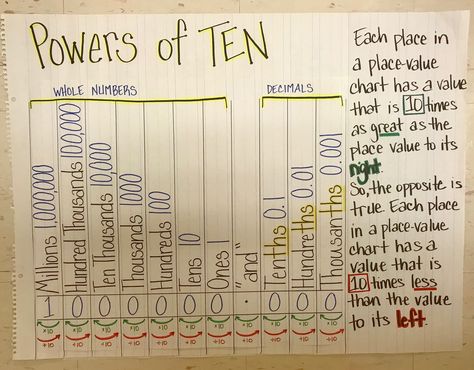 Powers of TEN
WHOLE NUMBERS
DECIMALS
Millions 1,000,000
Hundred Thousands 100,000
Ten Thousands 10,000
Thousands 1000
Hundreds 100
Tens 10
Ones 1
"and"
Tenths 0.1
Hundreths 0.01
Thousanths 0.001
1 0 0 0 0 0 0 . 0 0 0
x10 x10 x10 x10 x10 x10 x10 x10 x10 x10
÷10 ÷10 ÷10 ÷10 ÷10 ÷10 ÷10 ÷10 ÷10 ÷10
Each place in
a place-value
chart has a value
that is 10 times
as great as the
place value to its
right.
So, the opposite is
true. Each place
in a place-value
chart has a
value that is
10 times less
than the value
to its left.